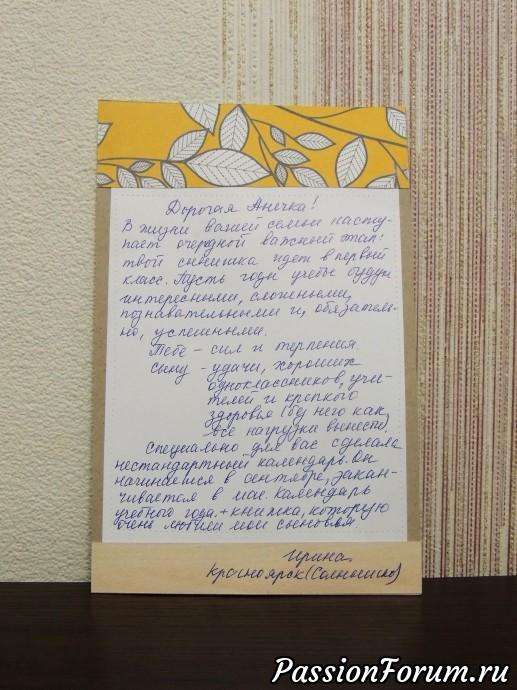 Дорогая Анечка!
В жизни вашей семьи насту-
пает очередной важный этап:
твой сынишка идет в первый
класс. Пусть годы учебы будут
интересными, сложными,
познавательными и, обязатель-
но, успешными.
Тебе - сил и терпения.
Сыну - удачи, хороших
одноклассников, учи-
телей и крепкого
здоровья (без него как
все нагрузки вынести).
Специально для вас сделала
нестандартный календарь. Он
начинается в сентябре, закан-
чивается в мае. Календарь
учебного года + книжка, которую
очень любили мои сыновья.
Ирина
Красноярск (Солнышко)
PassionForum.ru